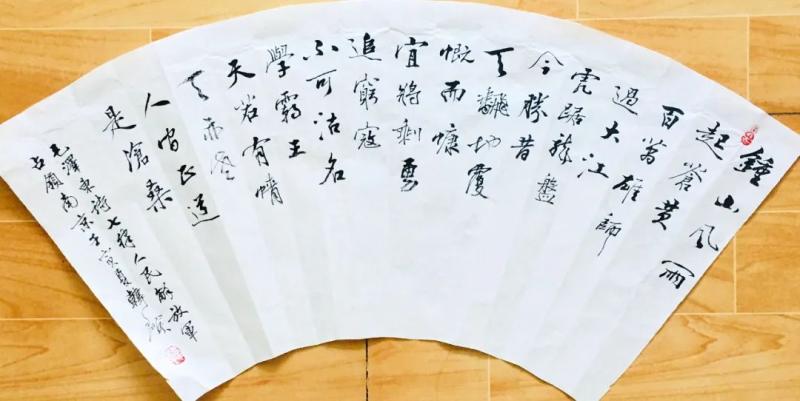 鍾山風雨
起蒼黄
百萬雄師
過大江
虎踞龍盤
今勝昔
天翻地覆
慨而慷
宜將剩勇
追窮寇
不可沽名
學霸王
天若有情
天亦老
人間正道
是滄桑
毛澤東詩七律人民解放軍
占領南京壬寅夏韓